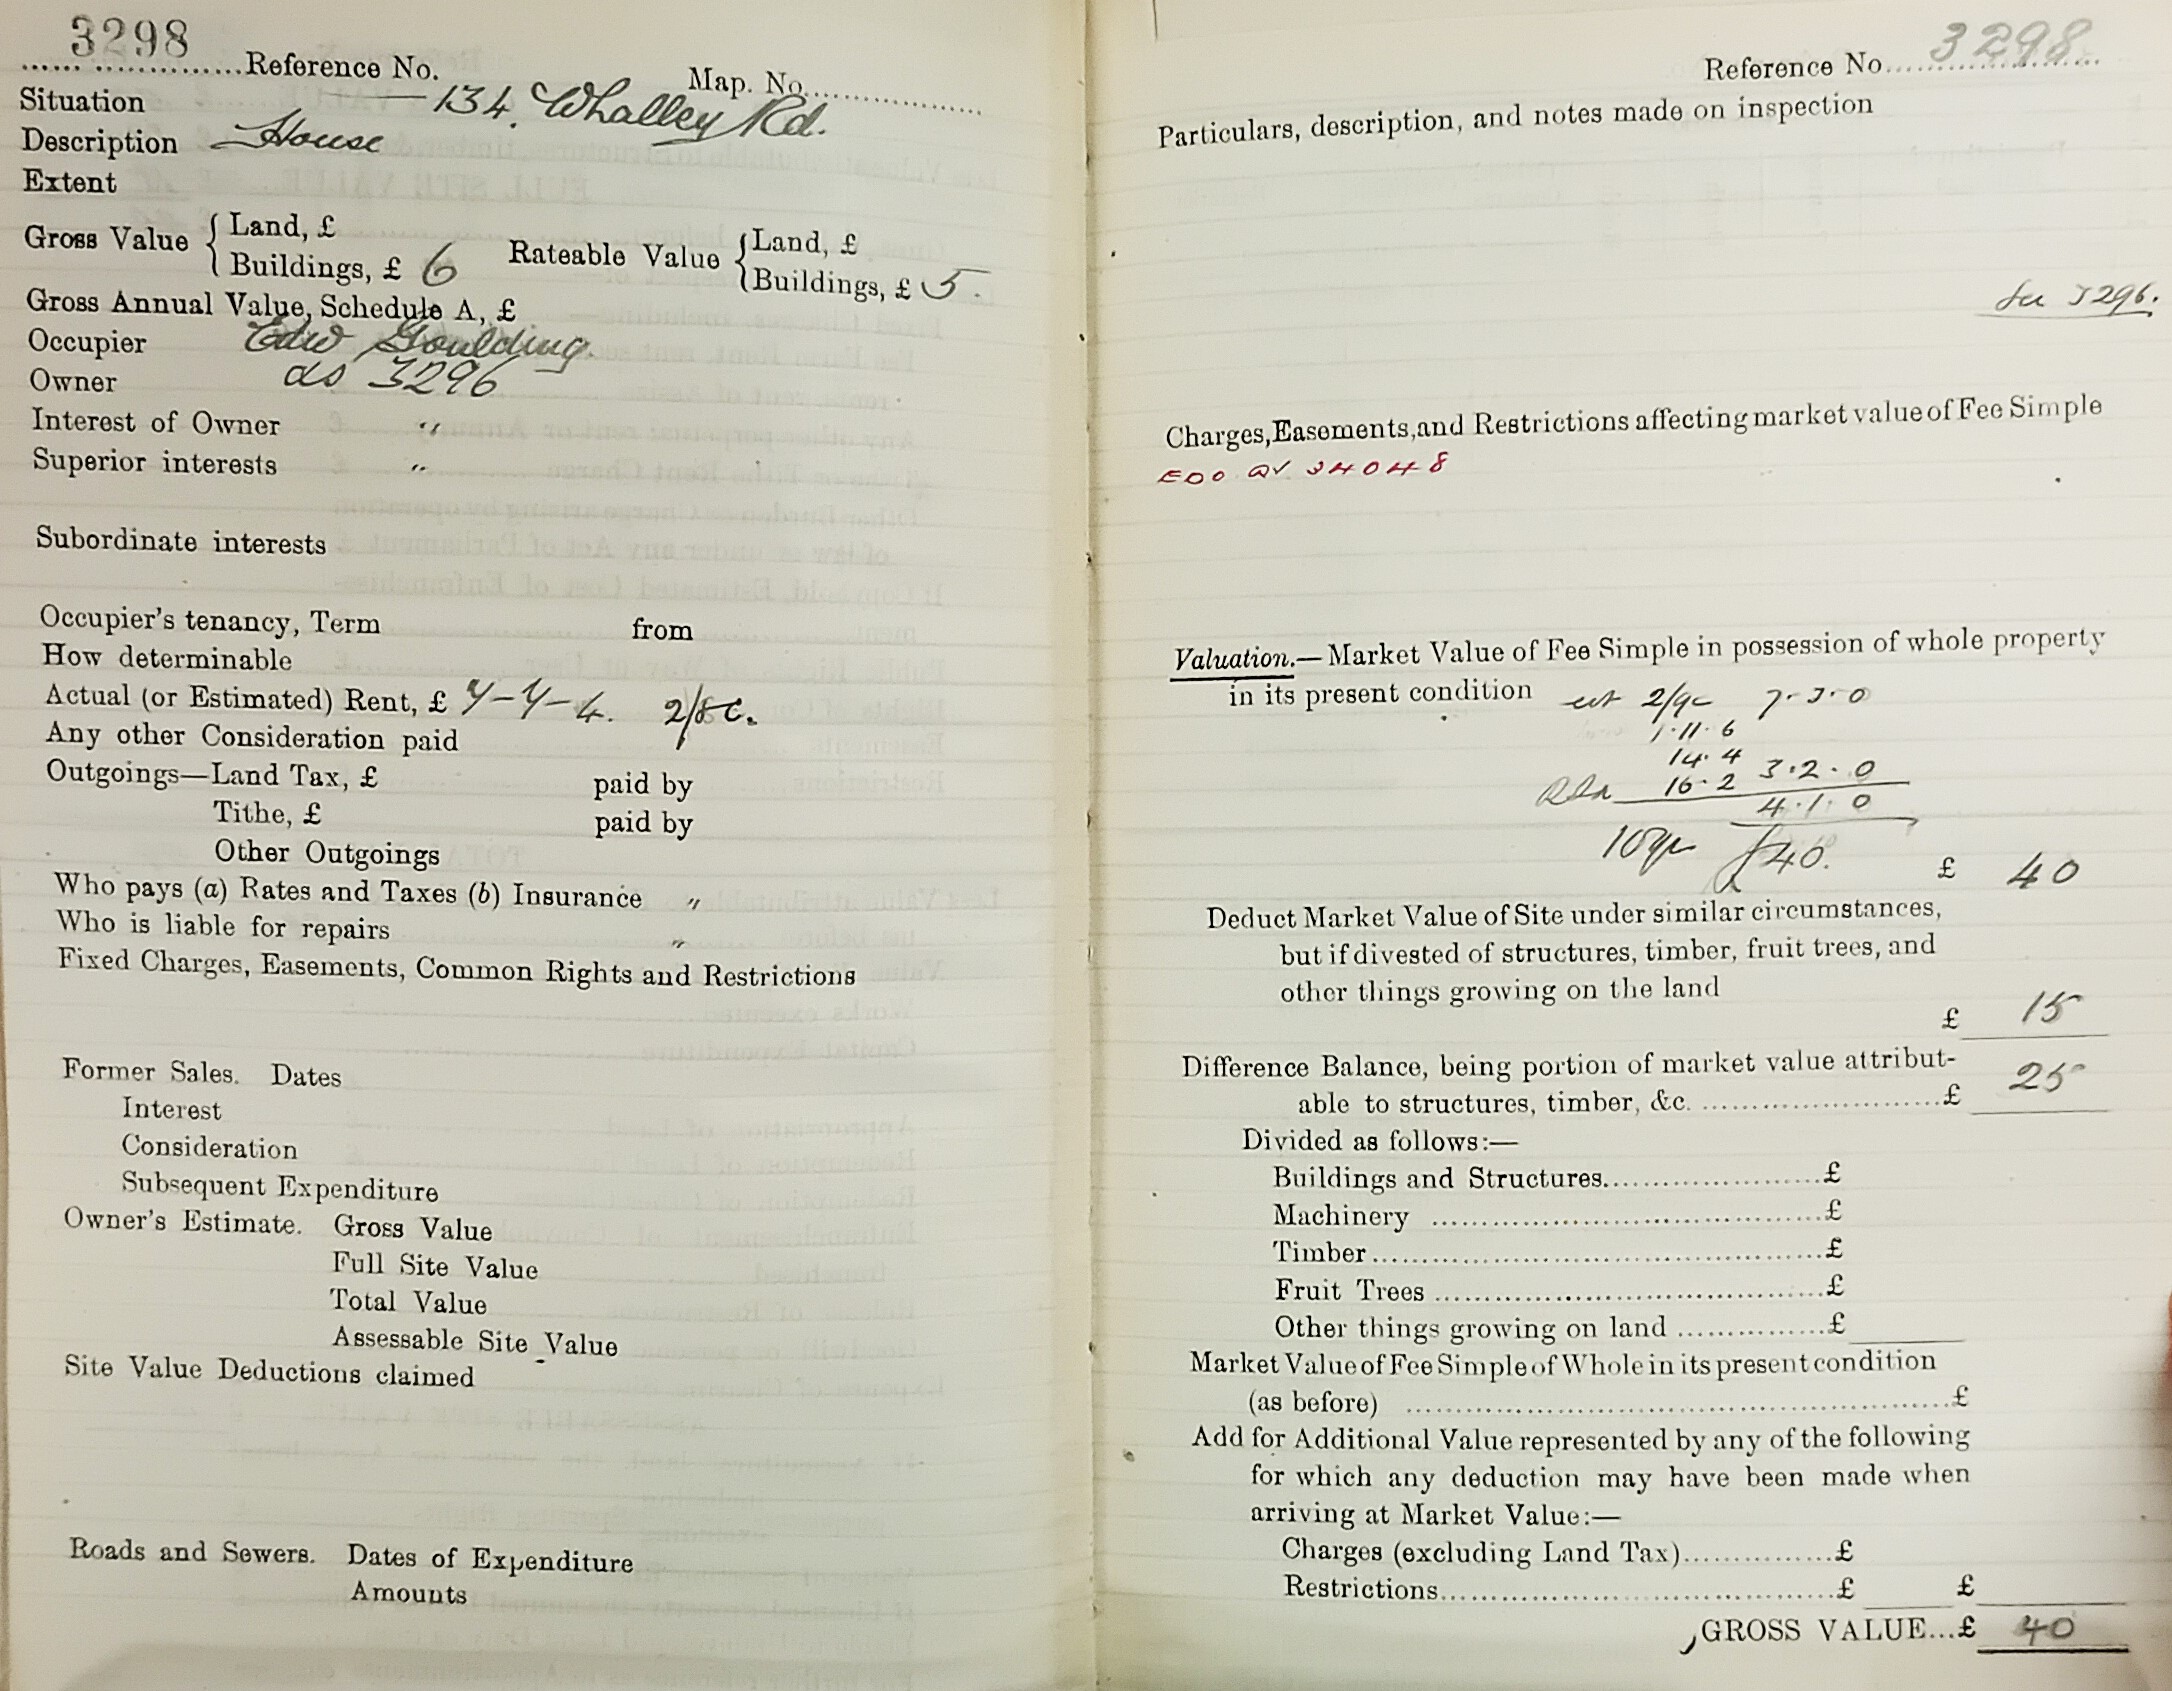 3298
Reference No. Map. No.
Situation 134, Whalley Rd.
Description House
Extent
Gross Value { Land, £
Buildings, £ 6
Rateable Value { Land, £
Buildings, £ 5.
Gross Annual Value, Schedule A, £
Occupier Edw Goulding.
Owner as 3296
Interest of Owner "
Superior interests "
Subordinate interests
Occupier's tenancy, Term from
How determinable
Actual (or Estimated) Rent, £ 7-7-4. 2/8 c.
Any other Consideration paid
Outgoings—Land Tax, £ paid by
Tithe, £ paid by
Other Outgoings
Who pays (a) Rates and Taxes (b) Insurance "
Who is liable for repairs "
Fixed Charges, Easements, Common Rights and Restrictions
Former Sales. Dates
Interest
Consideration
Subsequent Expenditure
Owner's Estimate. Gross Value
Full Site Value
Total Value
Assessable Site Value
Site Value Deductions claimed
Roads and Sewers. Dates of Expenditure
Amounts
Reference No. 3298
Particulars, description, and notes made on inspection
See 3296.
Charges, Easements, and Restrictions affecting market value of Fee Simple
EDO 34048
Valuation.—Market Value of Fee Simple in possession of whole property
in its present condition est 2/9c 7.3.0
1.11.6
14.4
16.2 3.2.0
4.1.0
10yr £40.
£ 40
Deduct Market Value of Site under similar circumstances,
but if divested of structures, timber, fruit trees, and
other things growing on the land
£ 15
Difference Balance, being portion of market value attribut-
able to structures, timber, &c. £ 25
Divided as follows:—
Buildings and Structures £
Machinery £
Timber £
Fruit Trees £
Other things growing on land £
Market Value of Fee Simple of Whole in its present condition
(as before) £
Add for Additional Value represented by any of the following
for which any deduction may have been made when
arriving at Market Value:—
Charges (excluding Land Tax) £
Restrictions £ £
GROSS VALUE...£ 40